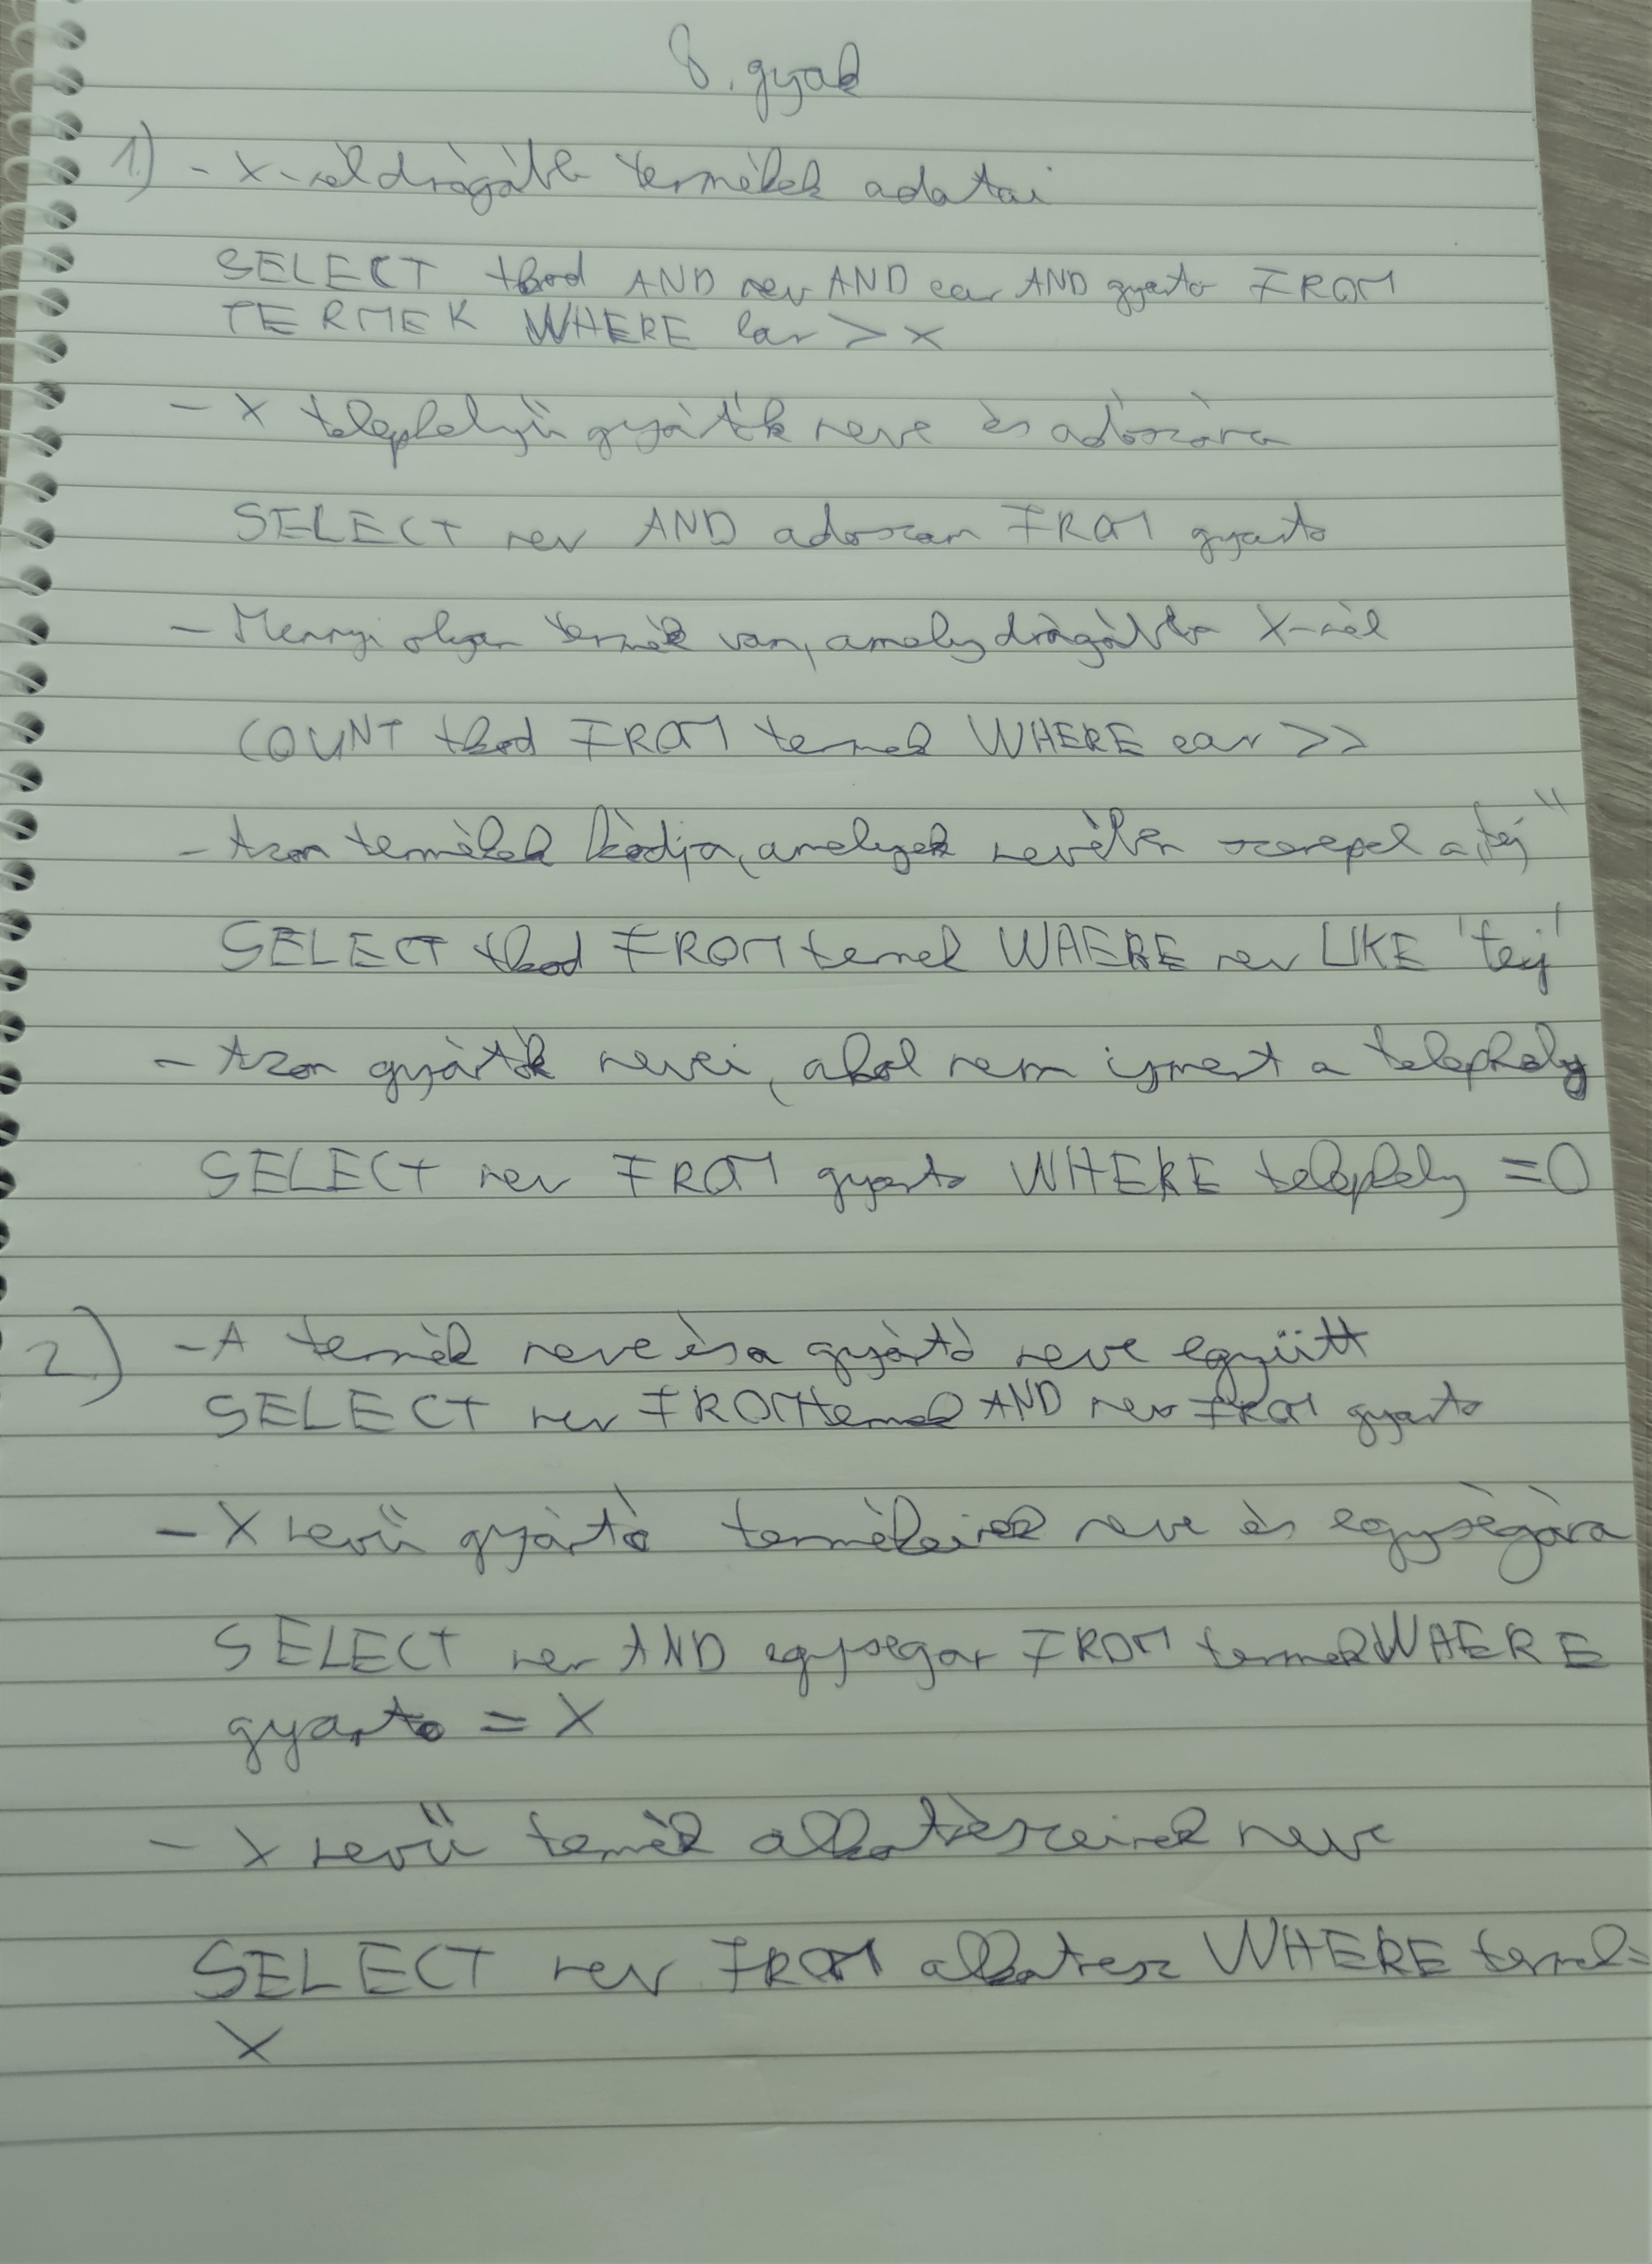 8. gyak
1.) - X-nél drágább termékek adatai
SELECT tkod AND nev AND ear AND gyarto FROM
TERMEK WHERE ear > x
- X telephelyű gyártók neve és adószáma
SELECT nev AND adoszam FROM gyarto
- Mennyi olyan termék van, amely drágább X-nél
COUNT tkod FROM termek WHERE ear >>
- Azon termékek kódja, amelyek nevében szerepel a „tej”
SELECT tkod FROM termek WHERE nev LIKE 'tej'
- Azon gyártók nevei, ahol nem ismert a telephely
SELECT nev FROM gyarto WHERE telephely = 0
2.) - A termék neve és a gyártó neve együtt
SELECT nev FROM termek AND nev FROM gyarto
- X nevű gyártó termékeinek neve és egységára
SELECT nev AND egysegar FROM termek WHERE
gyarto = X
- X nevű termék alkatrészeinek neve
SELECT nev FROM alkatresz WHERE termek =
X